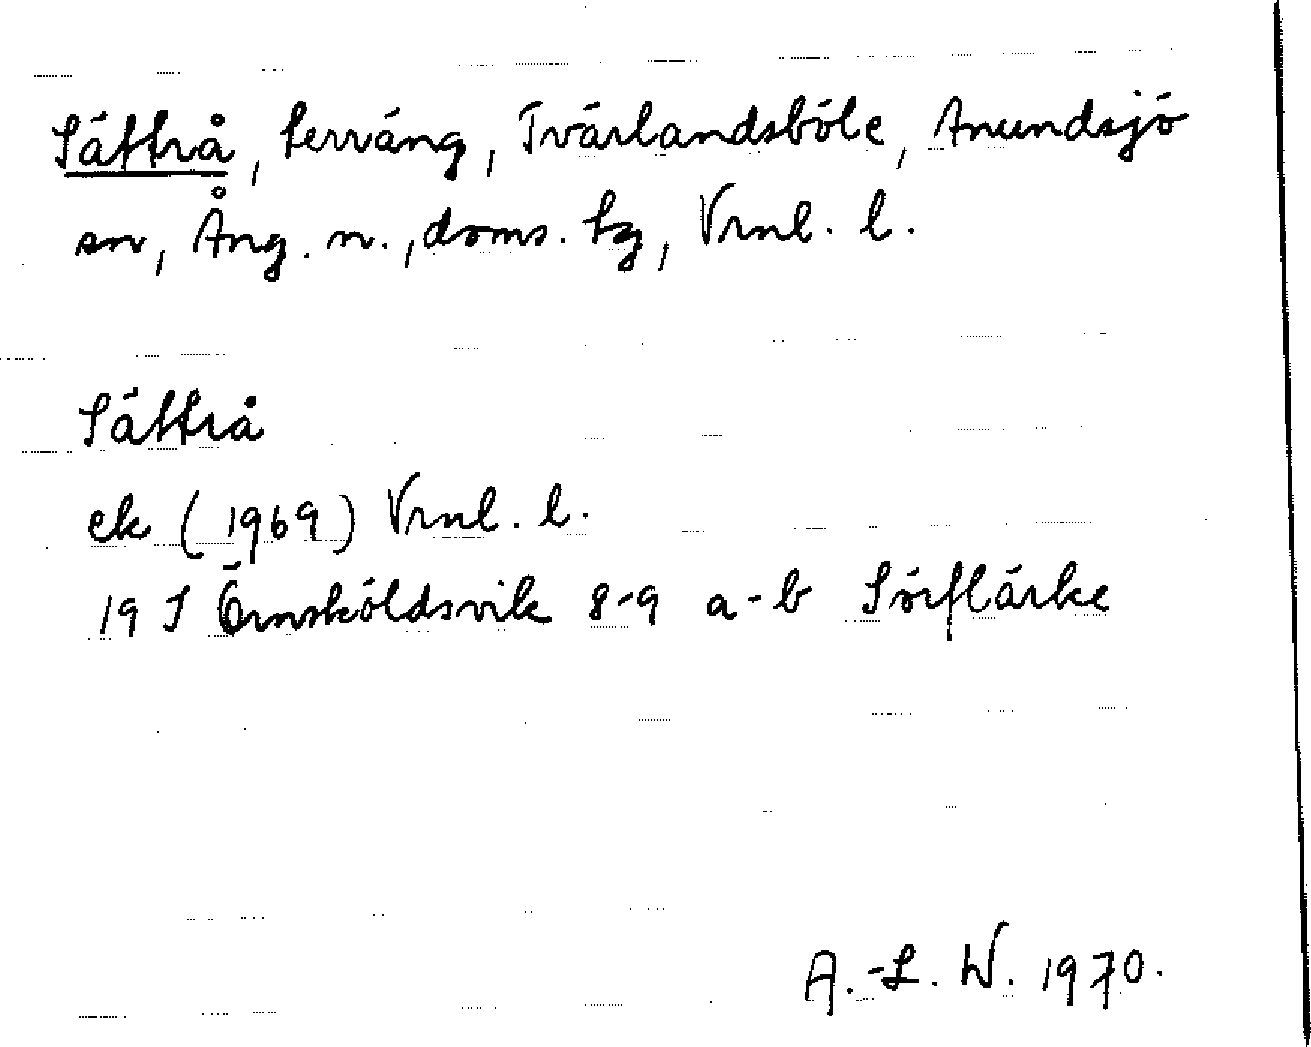 Sättrå, terräng, Tvärlandsböle, Anundsjö
sn, Ång. n., doms. tg, Vrnl. l.
Sättrå
ek (1969) Vrnl. l.
19 J Örnsköldsvik 8-9 a-b Sörflärke
A.-L. W. 1970.